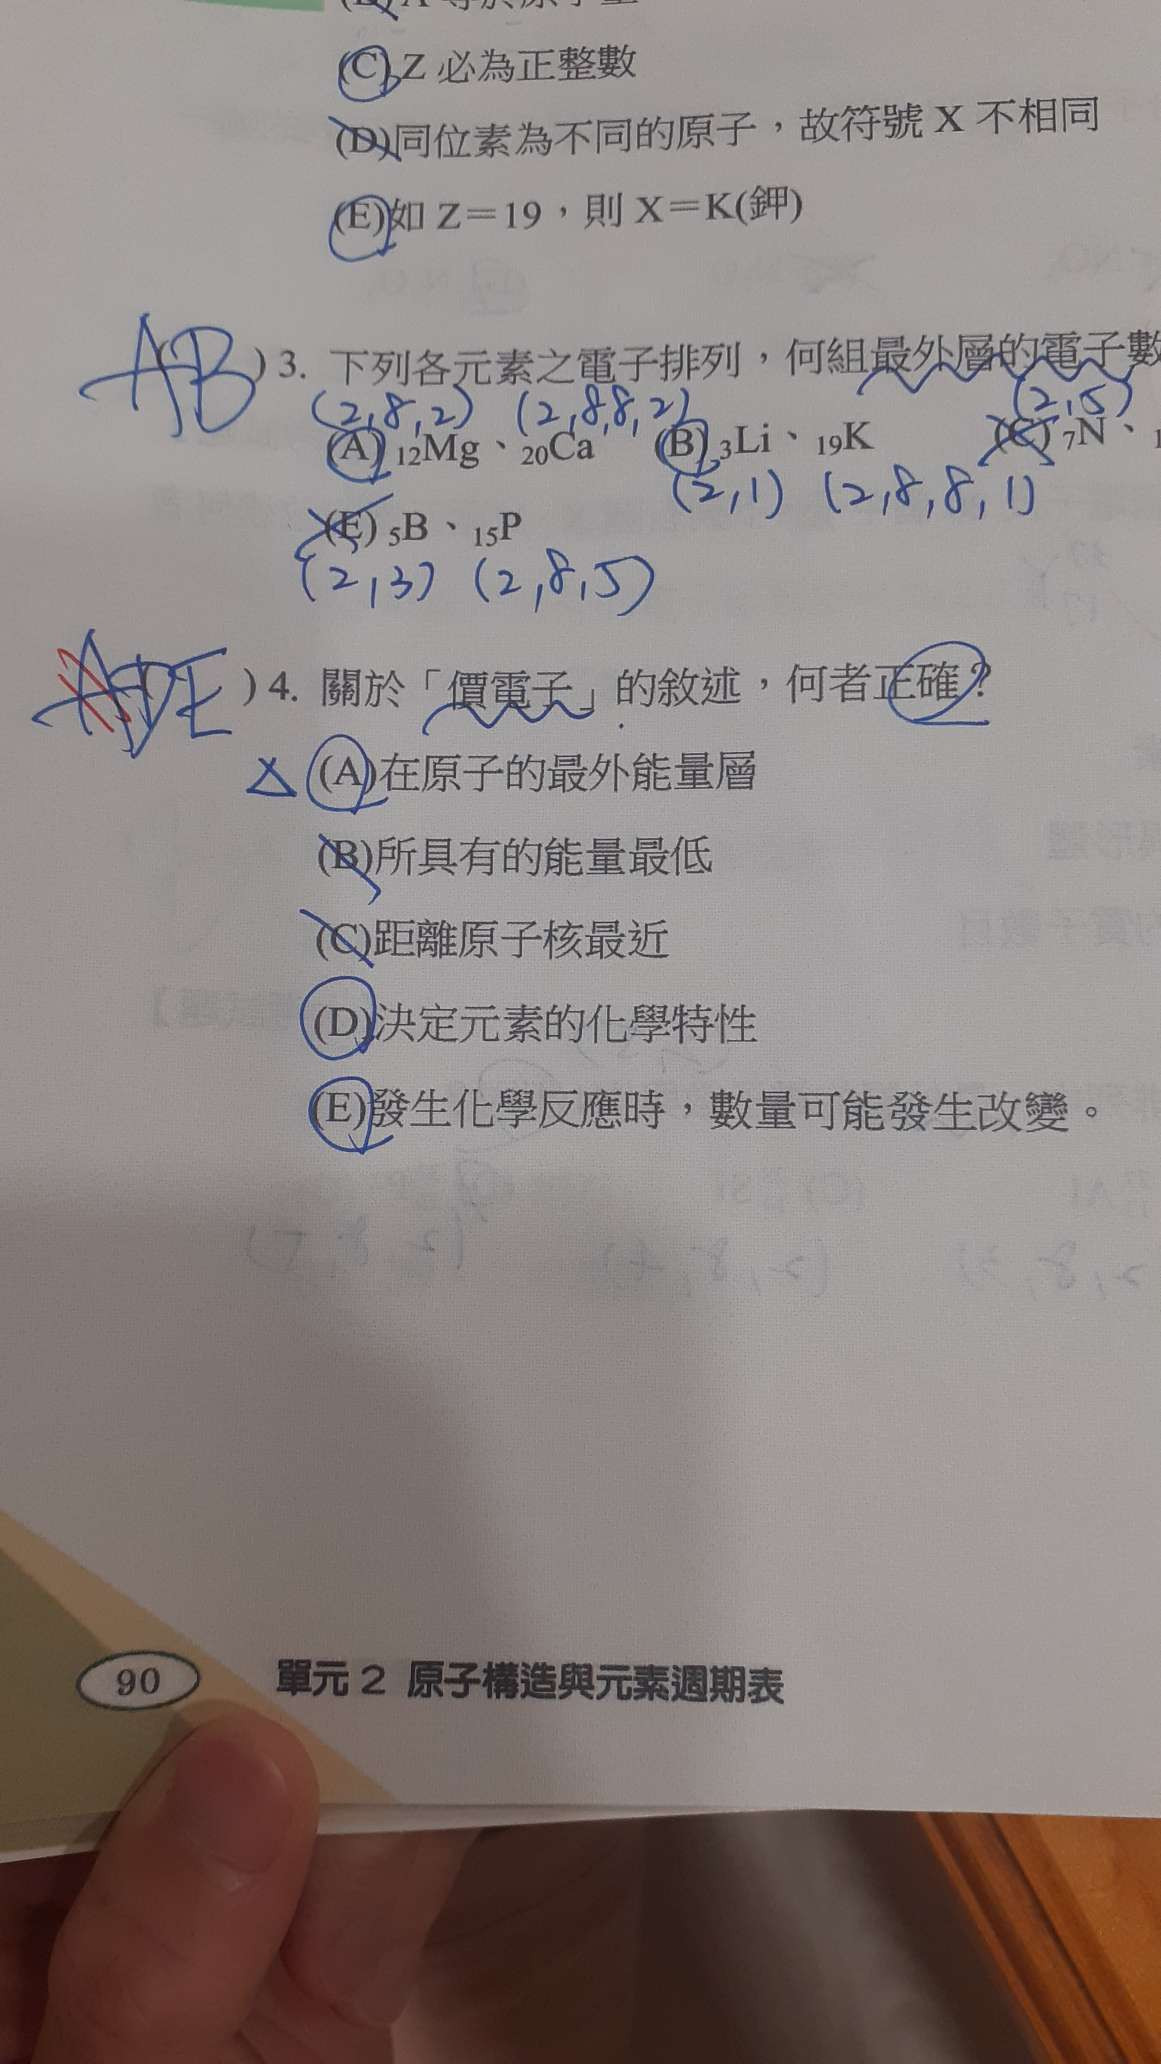 (C) Z 必為正整數
(D)同位素為不同的原子，故符號 X 不相同
(E)如 Z＝19，則 X＝K(鉀)
AB ) 3. 下列各元素之電子排列，何組最外層的電子數
(2,8,2) (2,8,8,2) (2,5)
(A) ₁₂Mg、₂₀Ca (B) ₃Li、₁₉K (C) ₇N、
(2,1) (2,8,8,1)
(E) ₅B、₁₅P
(2,3) (2,8,5)
ADE ) 4. 關於「價電子」的敘述，何者正確？
△ (A)在原子的最外能量層
(B)所具有的能量最低
(C)距離原子核最近
(D)決定元素的化學特性
(E)發生化學反應時，數量可能發生改變。
90 單元 2 原子構造與元素週期表